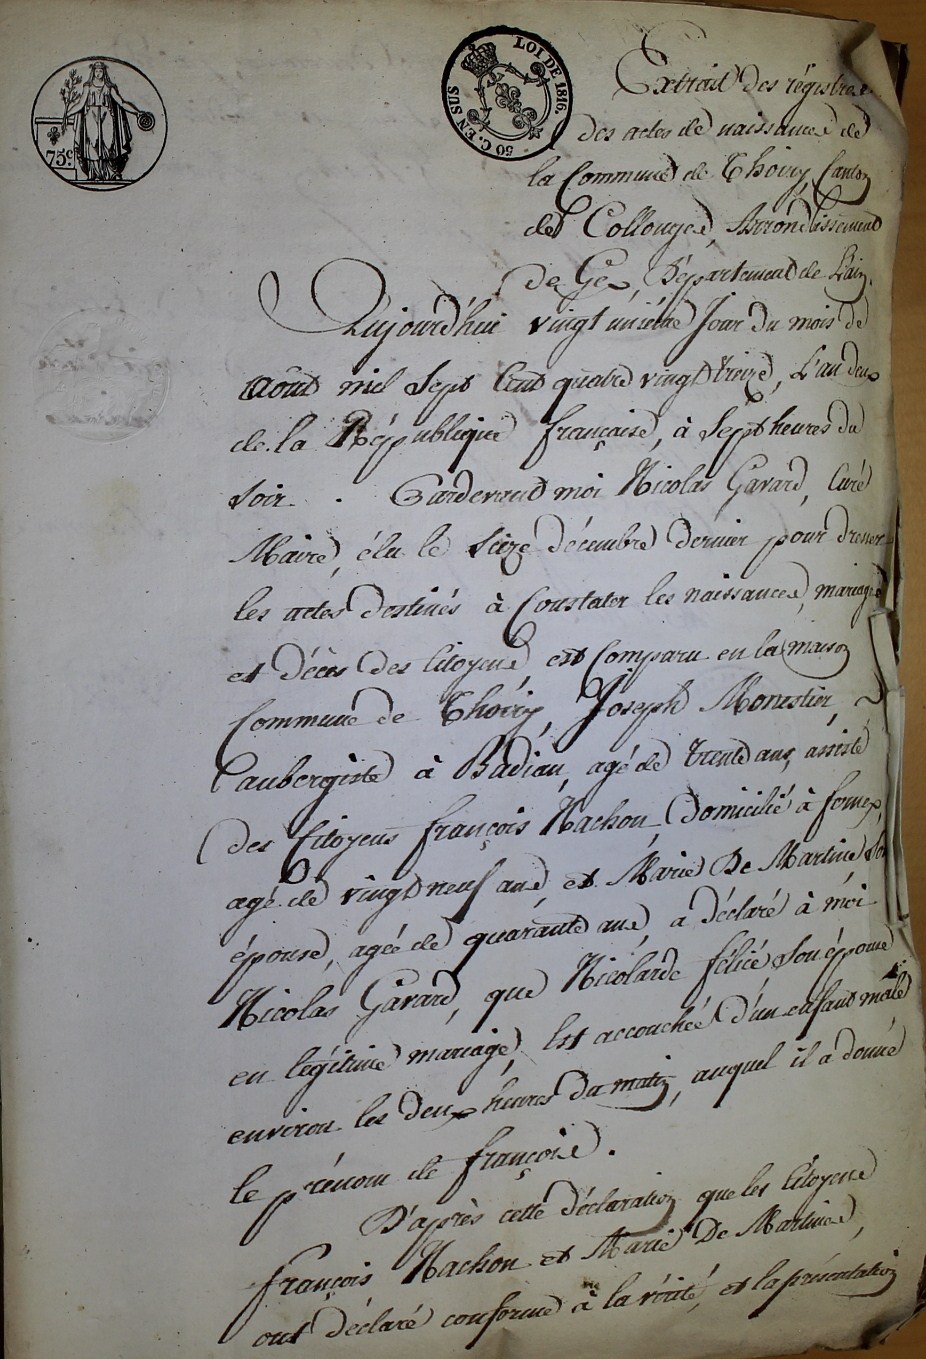 75c.
50 C. EN SUS LOI DE 1816.
Extrait des régistres
des actes de naissances de
la Commune de Thoiry, Canton
de Collonges, Arrondissement
de Gex, Département de L'ain.
Aujourd'hui vingt unième Jour du mois de
Août mil Sept Cent quatre vingt treize, L'an deux
de la République française, à Sept heures du
Soir. Pardevant moi Nicolas Gavard, Curé
Maire, élu le Seize décembre dernier pour dresser
les actes destinés à Constater les naissances, mariages
et décès des Citoyens, est Comparu en la maison
Commune de Thoiry, Joseph Monestier,
aubergiste à Badian, agé de trente ans, assisté
des Citoyens françois Nachon, Domicilié à fornex,
agé de vingt neuf ans, et Marie De Martine Son
épouse, agée de quarante ans, a déclaré à moi
Nicolas Gavard, que Nicolarde félicé Son épouse
en légitime mariage, Est accouchée d'un enfant mâle
environ les deux heures du matin, auquel il a donné
le prénom de françois.
D'après cette déclaration que les Citoyens
françois Nachon et Marie De Martine,
ont déclaré conforme à la vérité, et la présentation